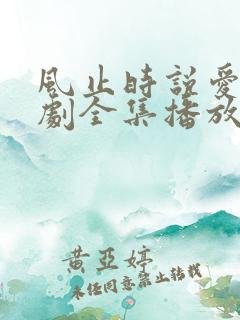 風止時說愛
劇全集播放
黃亞婷
未经同意禁止转载